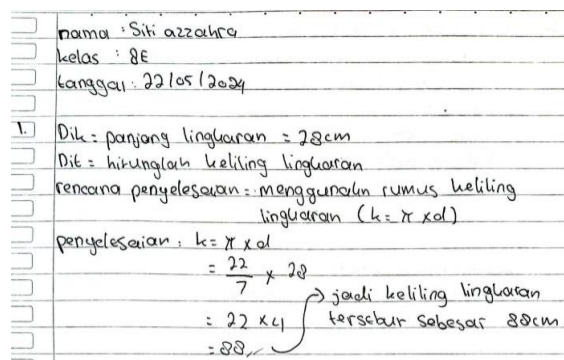 nama : Siti azzahra
kelas : 8E
tanggal : 22/05/2024
1. Dik = panjang lingkaran = 28cm
Dit = hitunglah keliling lingkaran
rencana penyelesaian = menggunakn rumus keliling
lingkaran (k = π x d)
penyelesaian : k = π x d
= 22/7 x 28
= 22 x 4
= 88,,
jadi keliling lingkaran
tersebut sebesar 88cm